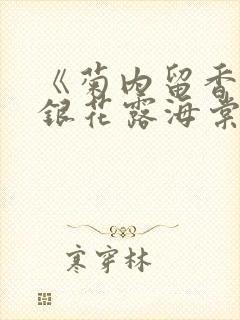 《菊内留香
銀花露海棠
寒穿林